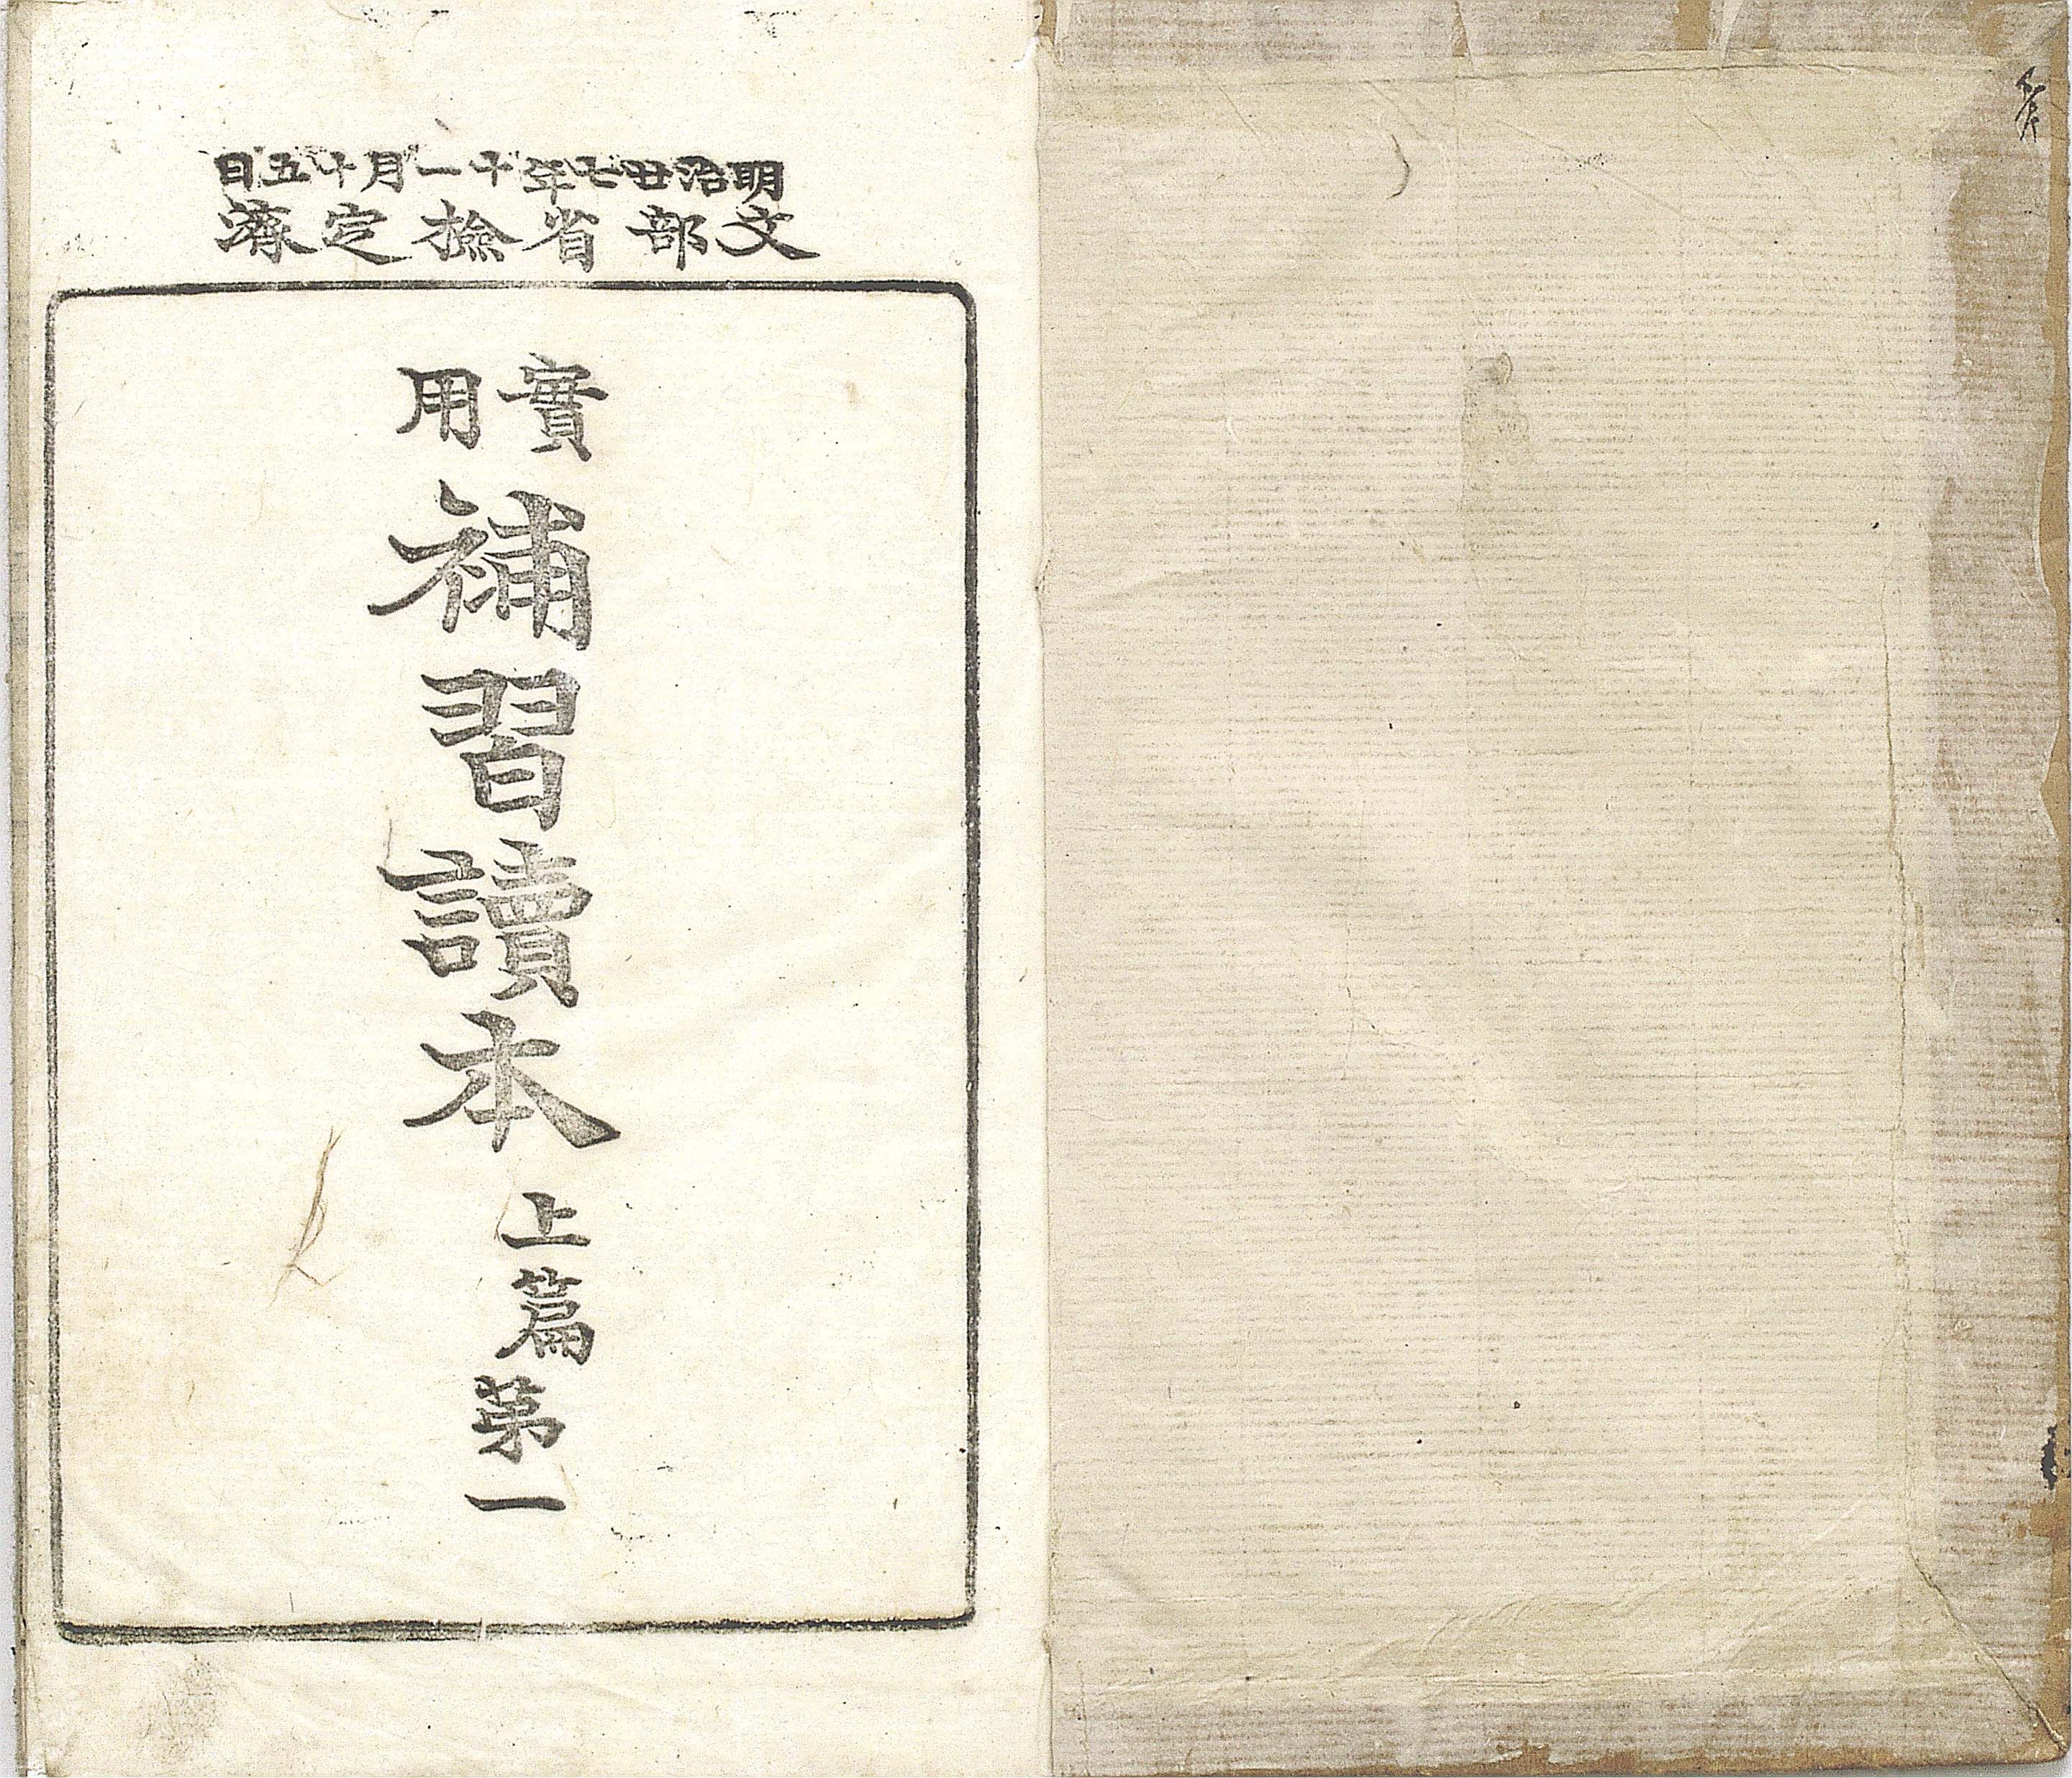 明治廿七年十一月十五日
文部省檢定濟
實用
補習讀本
上篇
第一